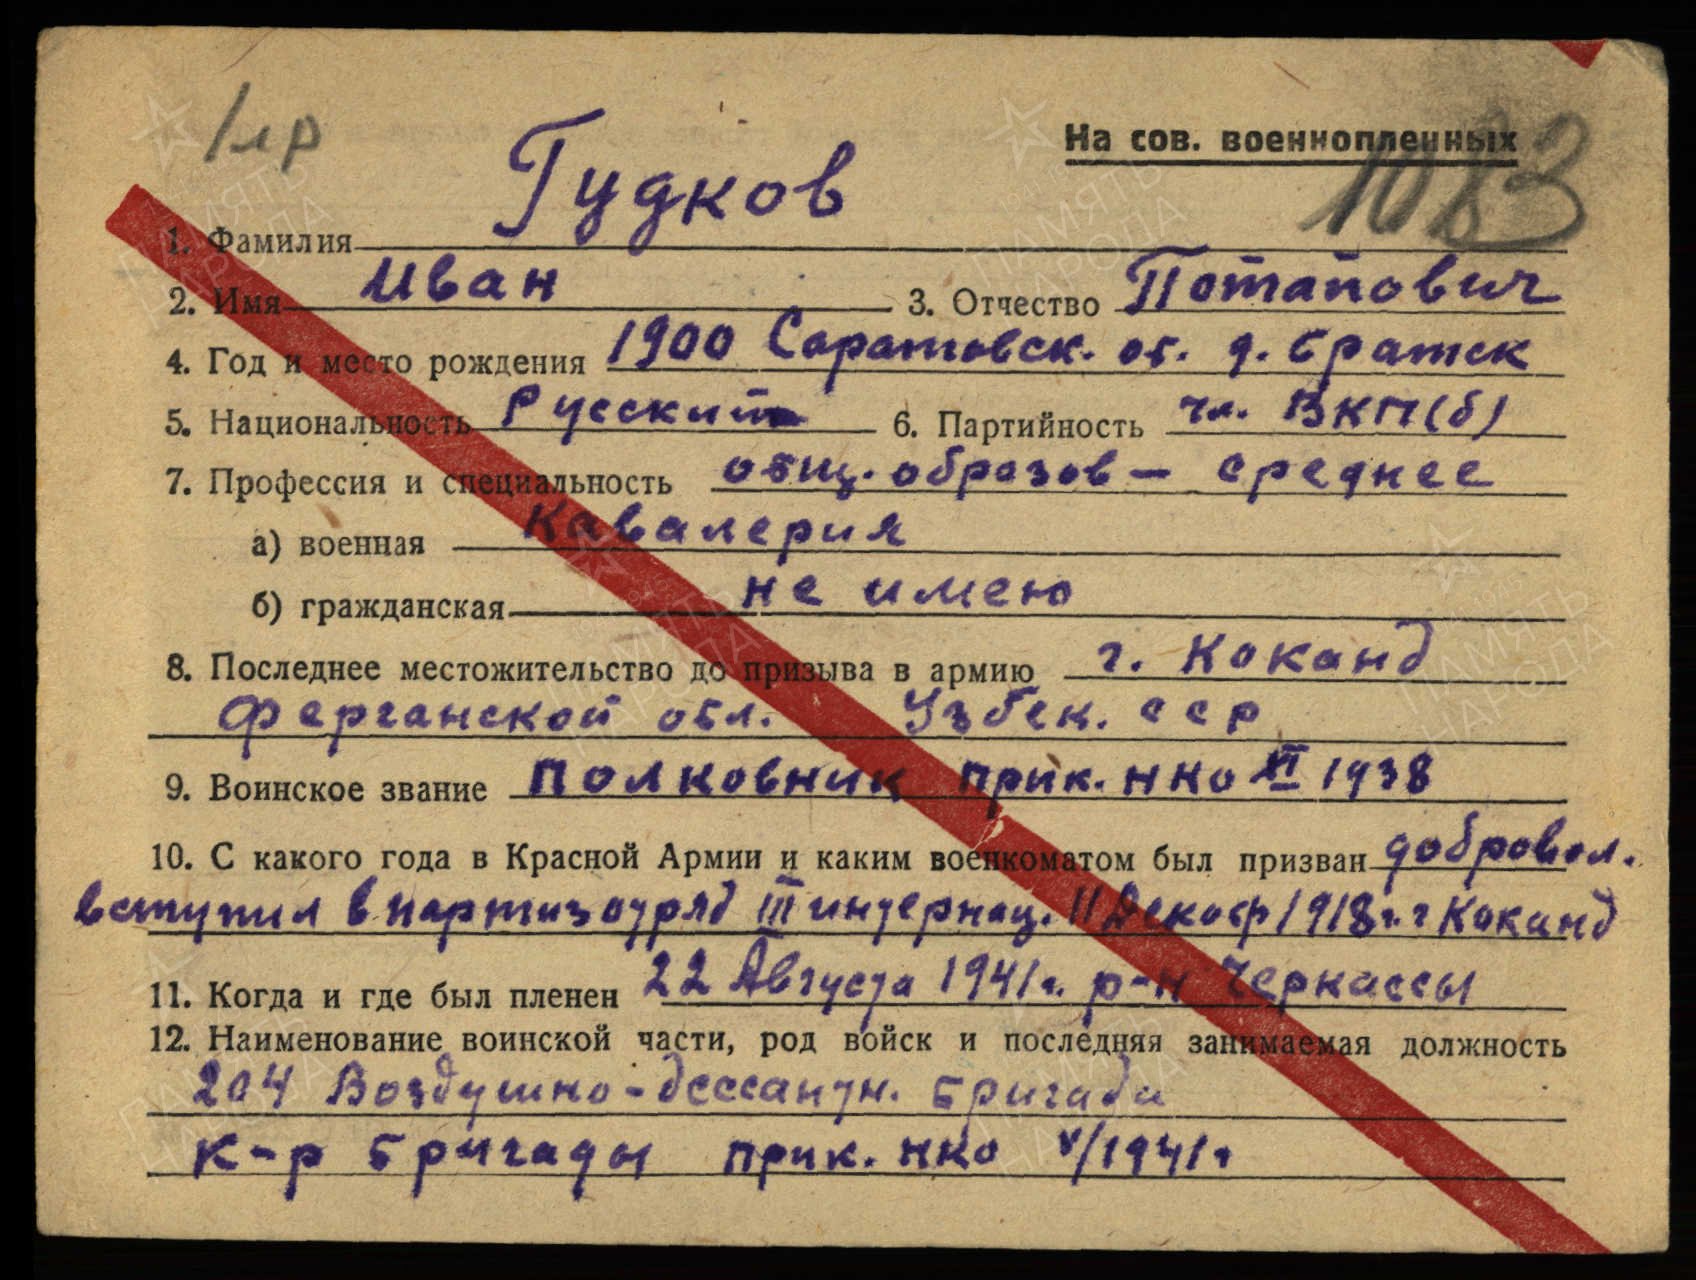 1мр
На сов. военнопленных
1083
Гудков
1. Фамилия
2. Имя Иван 3. Отчество Потапович
4. Год и место рождения 1900 Саратовск. об. д. Братск
5. Национальность Русский 6. Партийность чл. ВКП(б)
7. Профессия и специальность общ. образов – среднее
а) военная Кавалерия
б) гражданская не имею
8. Последнее местожительство до призыва в армию г. Коканд
Ферганской обл. Узбек. ССР
9. Воинское звание полковник прик. НКО VI 1938
10. С какого года в Красной Армии и каким военкоматом был призван добровол.
вступил в партизотряд III интернац. 11 Декабр 1918 г. г Коканд
11. Когда и где был пленен 22 Августа 1941 г. р-н Черкассы
12. Наименование воинской части, род войск и последняя занимаемая должность
204 Воздушно-десантн. Бригада
к-р Бригады прик. НКО V/1941 г
ПАМЯТЬ НАРОДА